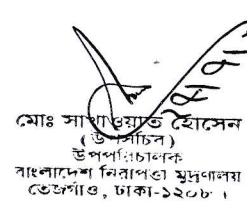 মোঃ সাখাওয়াত হোসেন
(উপসচিব)
উপপরিচালক
বাংলাদেশ নিরাপত্তা মুদ্রণালয়
তেজগাঁও, ঢাকা-১২০৮ ।